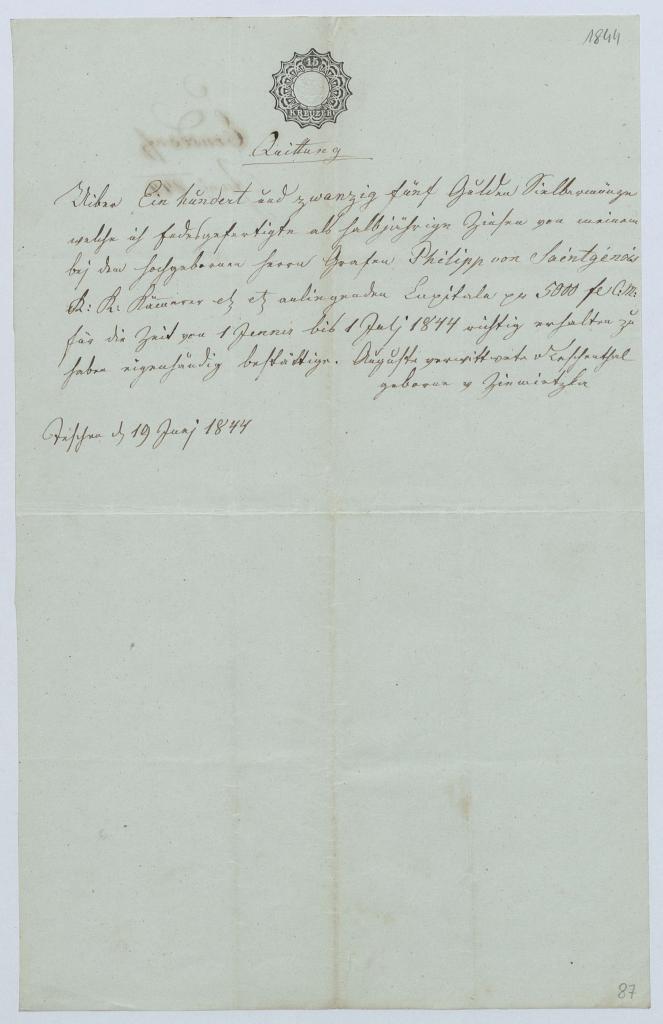 1844
15
KREUZER
Quittung
Uiber Ein hundert und zwanzig fünf Gulden Sielbermünze
welche ich Endesgefertigte als halbjährige Zinsen von meinem
bej dem hochgebornen Herrn Grafen Philipp von Saintgénois
K: K: Kämerer etz etz anliegenden Capitale pr 5000 fl C:M:
für die Zeit von 1 Jennir bis 1 Julj 1844 richtig erhalten zu
haben eigenhändig bestättige. Auguste verwittwete
geborne v
Teschen d 19 Junj 1844
87